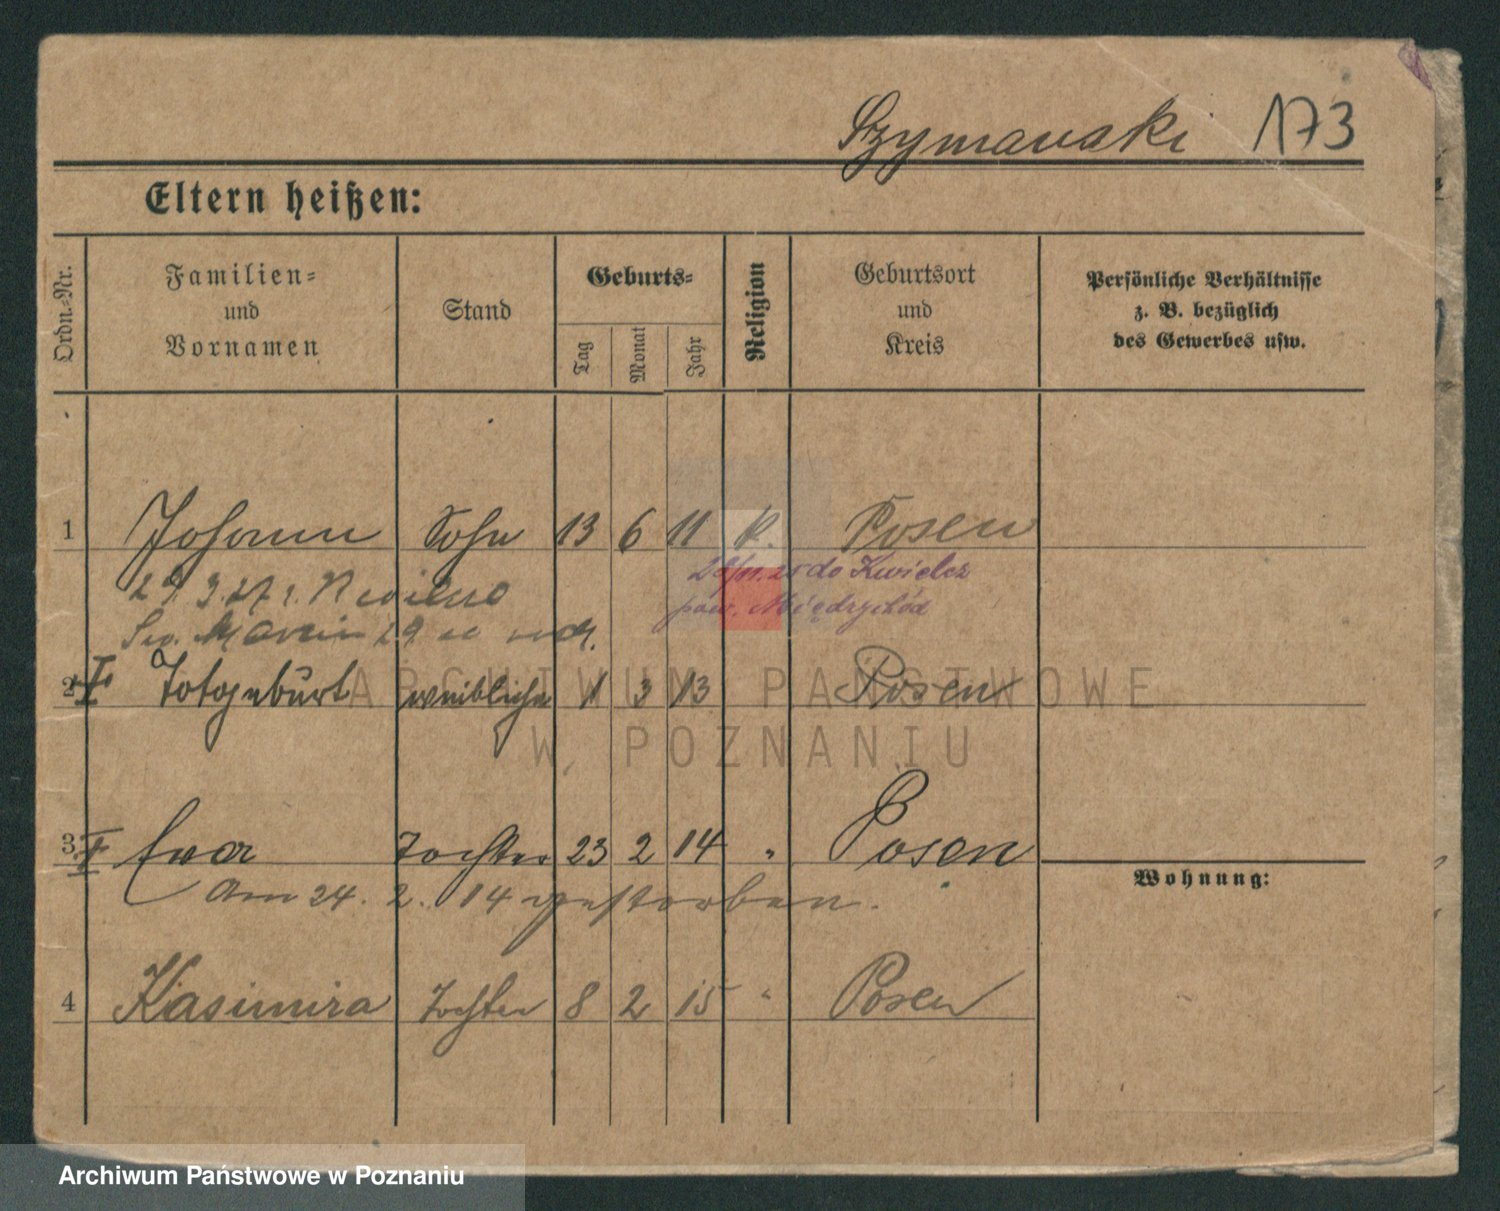 Szymanski 173
Eltern heißen:
Ordn.-Nr.
Familien-
und
Vornamen
Stand
Geburts-
Tag
Monat
Jahr
Religion
Geburtsort
und
Kreis
Persönliche Verhältnisse
z. B. bezüglich
des Gewerbes usw.
1 Johann Sohn 13 6 11 K. Posen
29.3.27 r.
28/11.25 do Kwielcz
pow. Międzychód
Św. Marcin 29
2 Totgeburt weibliche 1 3 13 Posen
ARCHIWUM PAŃSTWOWE
W POZNANIU
3 Eva Tochter 23 2 14 " Posen
Am 24. 2. 14 gestorben.
Wohnung:
4 Kasimira Tochter 8 2 15 " Posen
Archiwum Państwowe w Poznaniu